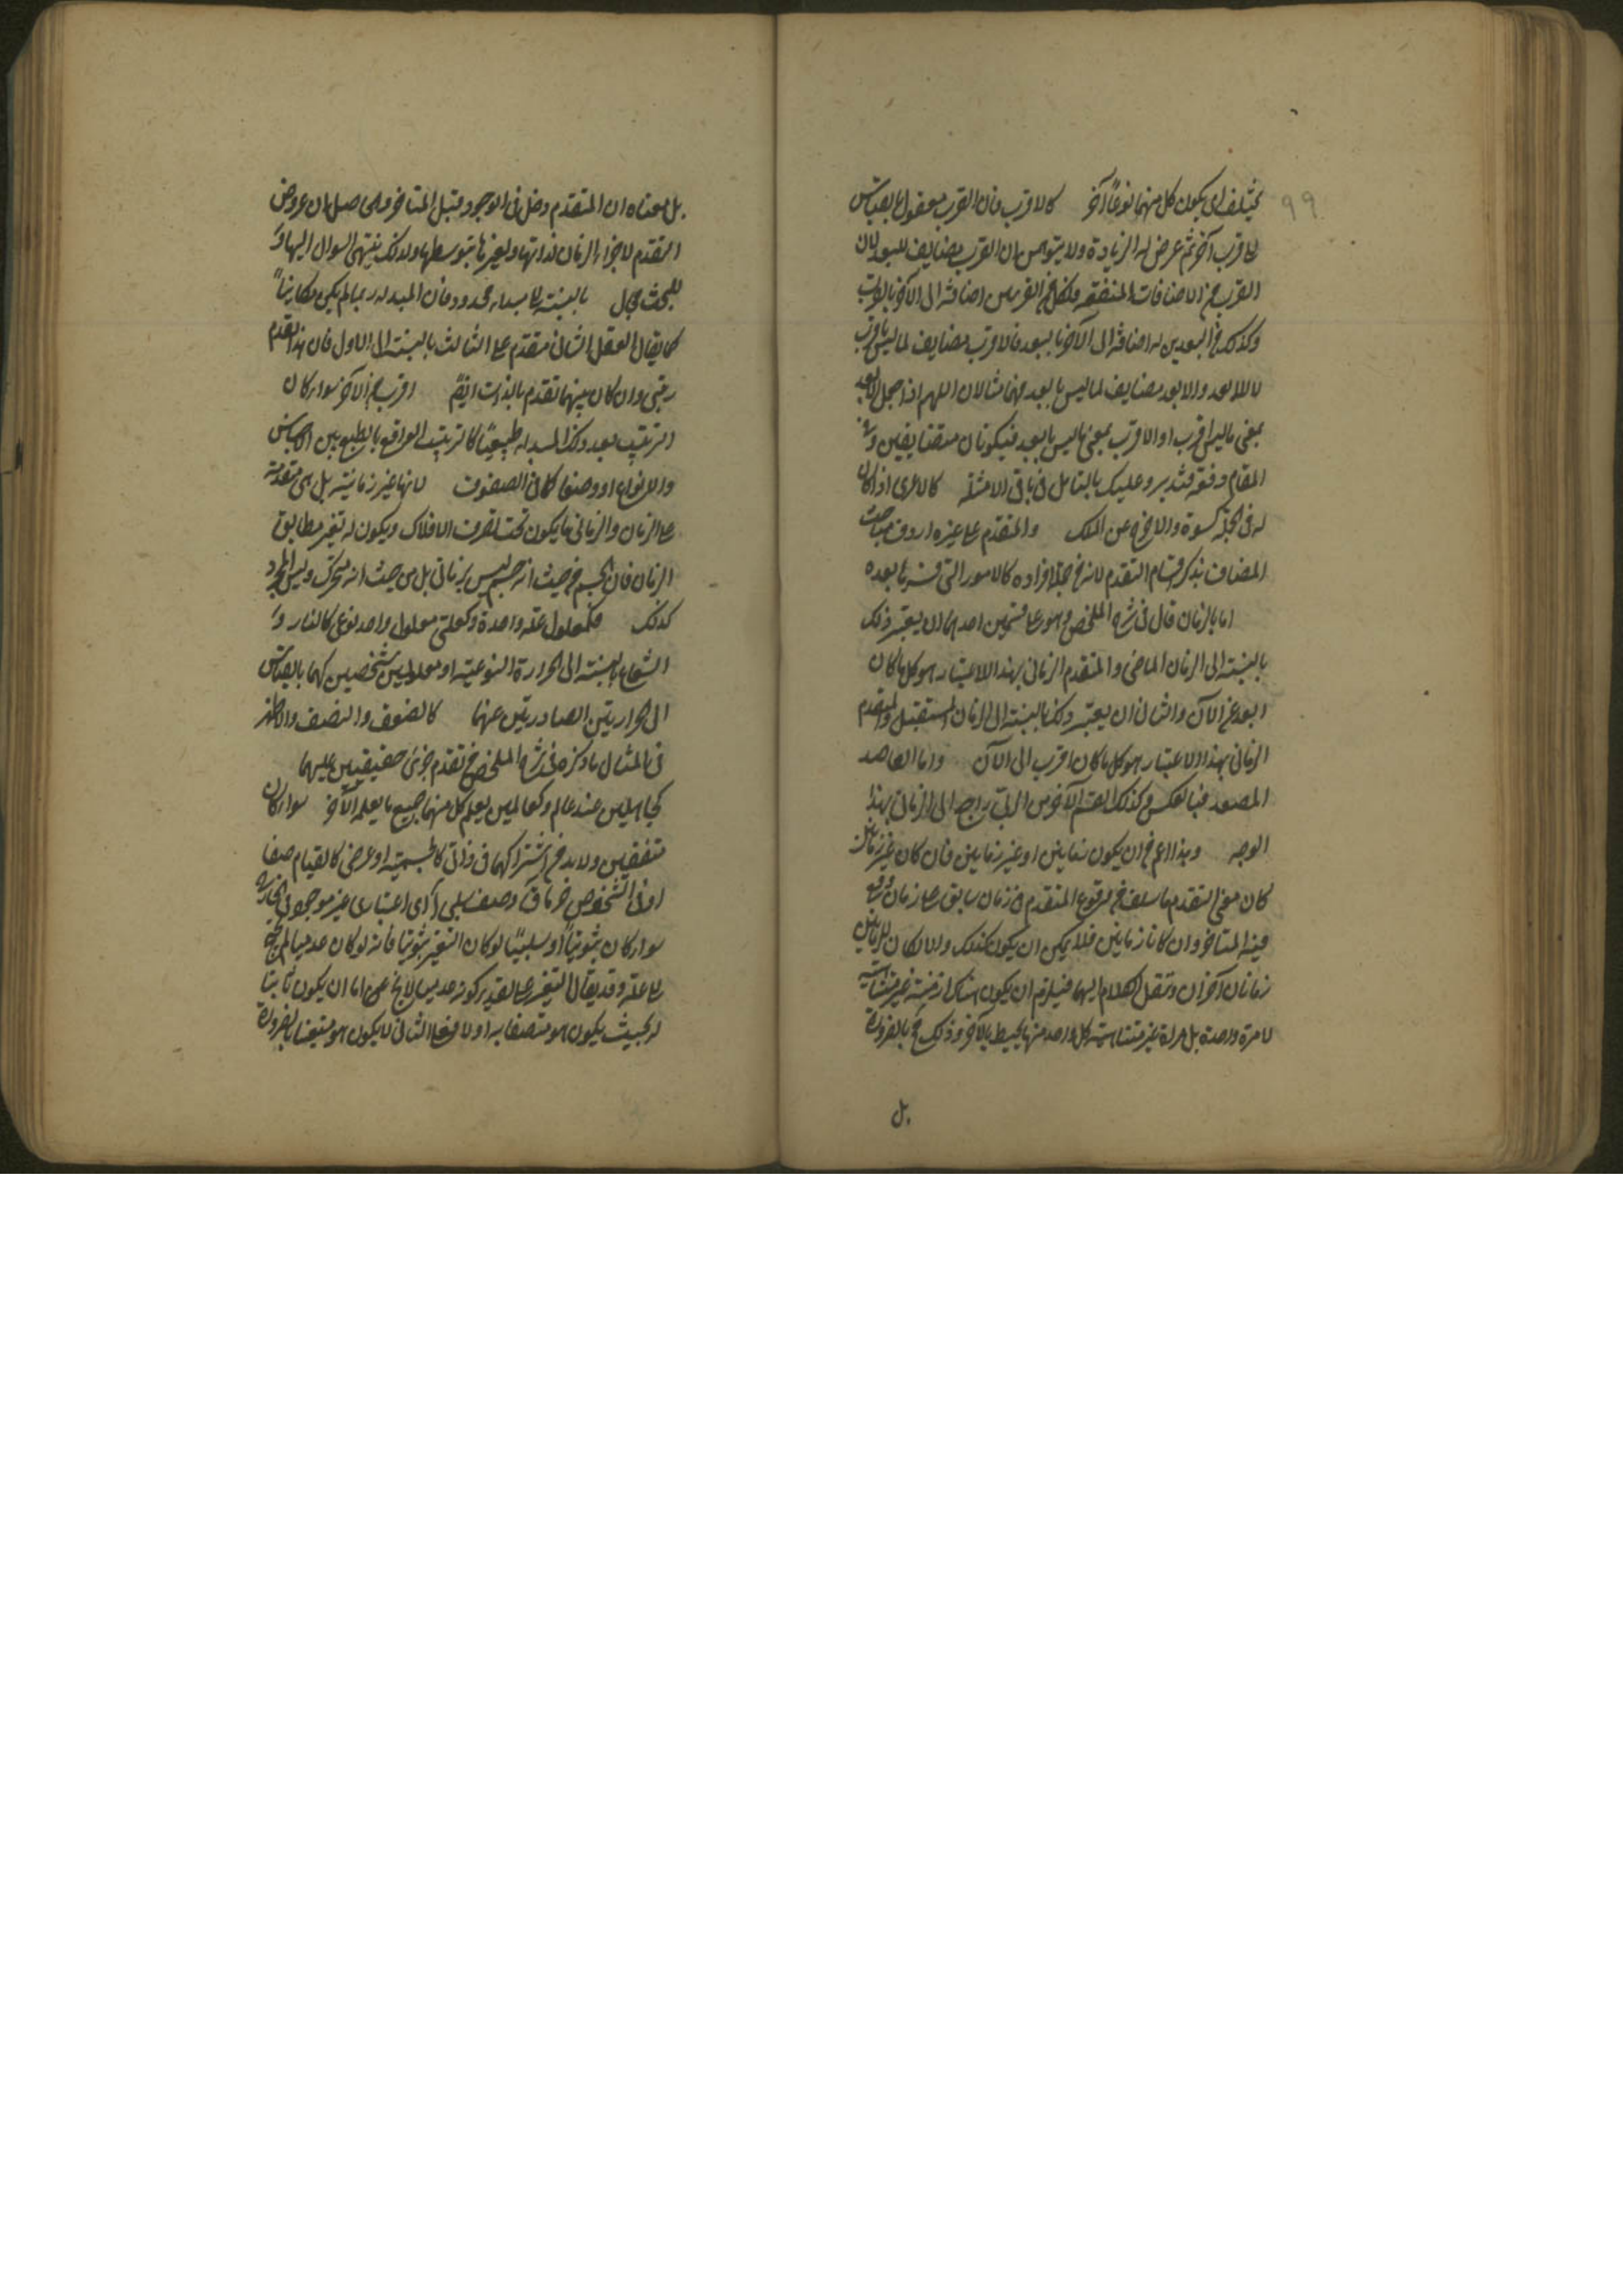 ٩٩
يختلف اى يكون كل منهما نوعاً آخر كالاقرب فان القرب معقول بالقياس
الى قرب آخر ثم عرض له الزيادة ولا يتوهمن ان القرب مضايف للبعد لان
القرب من الاضافات المتفقة فلكل من القربين اضافة الى الآخر بالقرب
وكذلك فى البعدين له اضافة الى الآخر بالبعد فالاقرب مضايف لما ليس باقرب
لا للابعد والابعد مضايف لما ليس بابعد فهما مثالان اللهم اذا جعل الابعد
بمعنى ما ليس اقرب او الاقرب بمعنى ما ليس بابعد فيكونان متضايفين
المقام دقة فتدبر وعليك بالتامل فى باقى الامثلة كالاعرى اذا كان
له فى الجملة كسوة والاخ عن الملك والمتقدم على غيره اردف مباحث
المضاف بذكر اقسام التقدم لانه من جملة افراده كالامور التى بعده
اما بالزمان قال فى شرح الملخص وهو على قسمين احدهما ان يعتبر ذلك
بالنسبة الى الزمان الماضى والمتقدم الزمانى بهذا الاعتبار هو كل ما كان
ابعد عن الآن والثانى ان يعتبر ذلك بالنسبة الى الزمان المستقبل والمتقدم
الزمانى بهذا الاعتبار هو كل ما كان اقرب الى الآن واما القاصد
المصعد فبالعكس وكذلك القسم الآخر من الرتبى راجع الى الزمانى بهذا
الوجه وهذا اعم من ان يكون زمانيين او غير زمانيين فان كان غير زمانيين
كان معنى التقدم ما سلف من وقوع المتقدم فى زمان سابق على زمان وقع
فيه المتاخر وان كانا زمانيين فلا يمكن ان يكون كذلك والا لكان للزمانين
زمانان آخران وننقل الكلام اليهما فيلزم ان يكون هناك ازمنة غير متناهية
لا مرة واحدة بل مراة غير متناهية كل واحد منها يحيط بالآخر وذلك مح بالضرورة
بل
بل معناه ان المتقدم دخل فى الوجود قبل المتاخر والحاصل ان عروض
التقدم لاجزاء الزمان لذاتها ولغيرها بتوسطها ولذلك ينتهى السوال اليها
للبحث مجال بالنسبة الى مبداء محدود فان المبدا ربما لم يكن مكانيا
كما يقال العقل الثانى متقدم على الثالث بالنسبة الى الاول فان هذا تقدم
رتبى وان كان بينهما تقدم بالذات ايضا اقرب من الآخر سواء كان
الترتيب بعد ذلك المبداء طبيعيا كالترتيب الواقع بالطبع بين الاجناس
والانواع او وضعا كما فى الصفوف لانها غير زمانية بل هى متقدمة
على الزمان والزمانى ما يكون تحت تصرف الافلاك ويكون له تغير مطابق
الزمان فان الجسم من حيث انه جسم ليس بزمانى بل من حيث انه متحرك وليس المجرد
كذلك فكمعلول علة واحدة وكعلتى معلول واحد نوعى كالنار و
الشعاع بالنسبة الى الحرارة النوعية او معلولين شخصيين كهما بالقياس
الى الحرارتين الصادرتين عنهما كالضعف والنصف والاظهر
فى المثال ما ذكره فى شرح الملخص من تقدم جزئى حقيقيين عليهما
كجاهلين عند عالم وكعالمين يعلم كل منهما جميع ما يعلمه الآخر سواء كان
متفقين ولا بد من اشتراكهما فى ذاتى كالجسمية او عرضى كالقيام صفا
او فى الشخوص وصف سلبى اى اعتبارى غير موجود فى الخارج
سواء كان ثبوتيا او سلبيا لو كان التغير ثبوتيا فانه لو كان عدميا لم يحتج
الى علة وقد يقال التغير على تقدير كونه عدميا لا يخ عن اما ان يكون ثابتا
له بحيث يكون هو متصفا به او لا فعلى الثانى لا يكون هو متغيرا بالضرورة